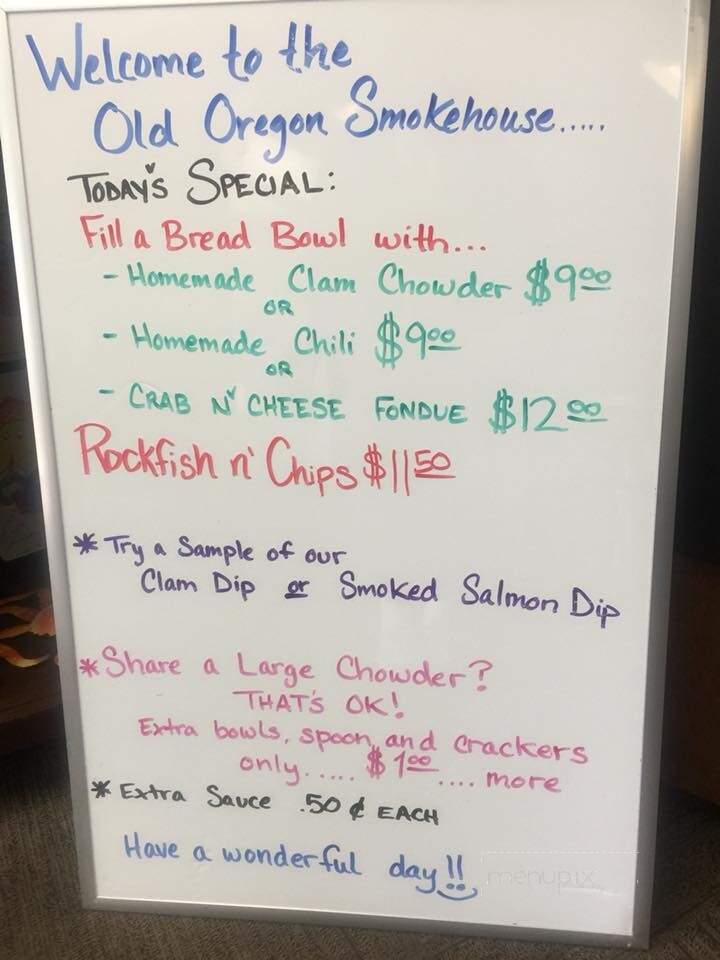 Welcome to the
Old Oregon Smokehouse.....
TODAY'S SPECIAL:
Fill a Bread Bowl with...
- Homemade Clam Chowder $9.00
OR
- Homemade Chili $9.00
OR
- CRAB N' CHEESE FONDUE $12.00
Rockfish n' Chips $11.50
* Try a Sample of our
Clam Dip or Smoked Salmon Dip
* Share a Large Chowder?
THAT'S OK!
Extra bowls, spoon, and crackers
only..... $1.00 .... more
* Extra Sauce .50 ¢ EACH
Have a wonderful day!!
menupix